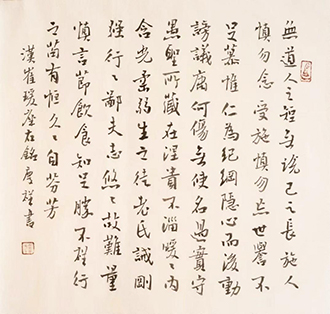 無道人之短无說己之長施人
慎勿念受施慎勿忘世譽不
足慕惟仁為紀綱隱心而後動
謗議庸何傷無使名過實守
愚聖所藏在涅貴不淄曖〻內
含光柔弱生之徒老氏誡剛
强行〻鄙夫志悠〻故難量
慎言節飲食知足勝不祥行
之苟有恒久〻自芬芳
漢崔瑗座右銘書